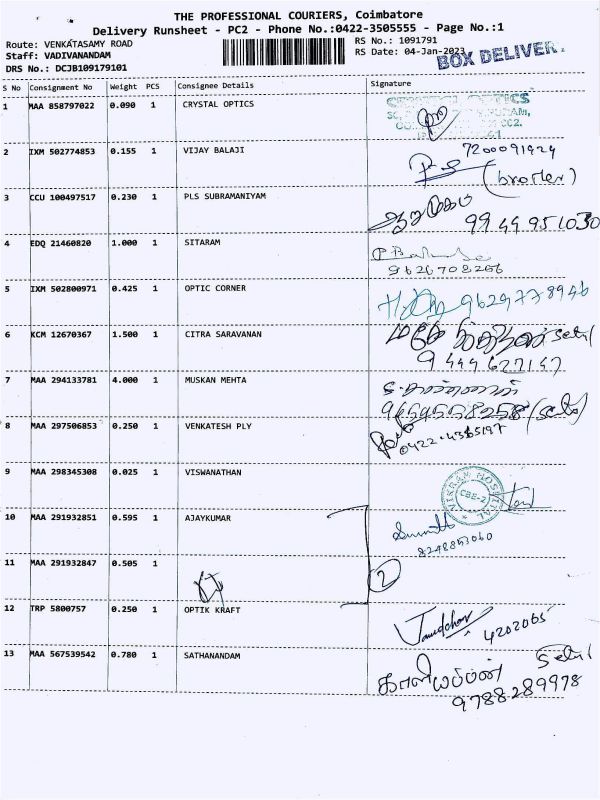 THE PROFESSIONAL COURIERS, Coimbatore
Delivery Runsheet - PC2 - Phone No.:0422-3505555 - Page No.:1
Route: VENKATASAMY ROAD
RS No.: 1091791
Staff: VADIVANANDAM
RS Date: 04-Jan-2023
BOX DELIVER
DRS No.: DCJB109179101
S No Consignment No Weight PCS Consignee Details Signature
1 MAA 858797022 0.090 1 CRYSTAL OPTICS
OPTICS
2 IXM 502774853 0.155 1 VIJAY BALAJI
7200091424
(brother)
3 CCU 100497517 0.230 1 PLS SUBRAMANIYAM
9944951030
4 EDQ 21460820 1.000 1 SITARAM
9626708266
5 IXM 502800971 0.425 1 OPTIC CORNER
9629778946
6 KCM 12670367 1.500 1 CITRA SARAVANAN
9444627147
7 MAA 294133781 4.000 1 MUSKAN MEHTA
8 MAA 297506853 0.250 1 VENKATESH PLY
0422-4365197
9 MAA 298345308 0.025 1 VISWANATHAN
VIKRAM HOSPITAL
CBE-2
10 MAA 291932851 0.595 1 AJAYKUMAR
8248853060
11 MAA 291932847 0.505 1
2
12 TRP 5800757 0.250 1 OPTIK KRAFT
4202065
13 MAA 567539542 0.780 1 SATHANANDAM
காளியப்பன்
9788289978